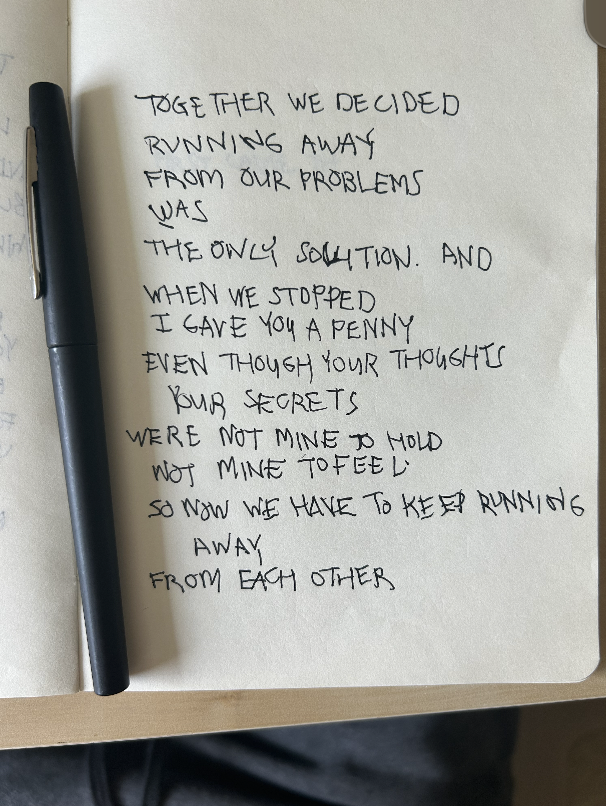 TOGETHER WE DECIDED
RUNNING AWAY
FROM OUR PROBLEMS
WAS
THE ONLY SOLUTION. AND
WHEN WE STOPPED
I GAVE YOU A PENNY
EVEN THOUGH YOUR THOUGHTS
YOUR SECRETS
WERE NOT MINE TO HOLD
NOT MINE TO FEEL
SO NOW WE HAVE TO KEEP RUNNING
AWAY
FROM EACH OTHER